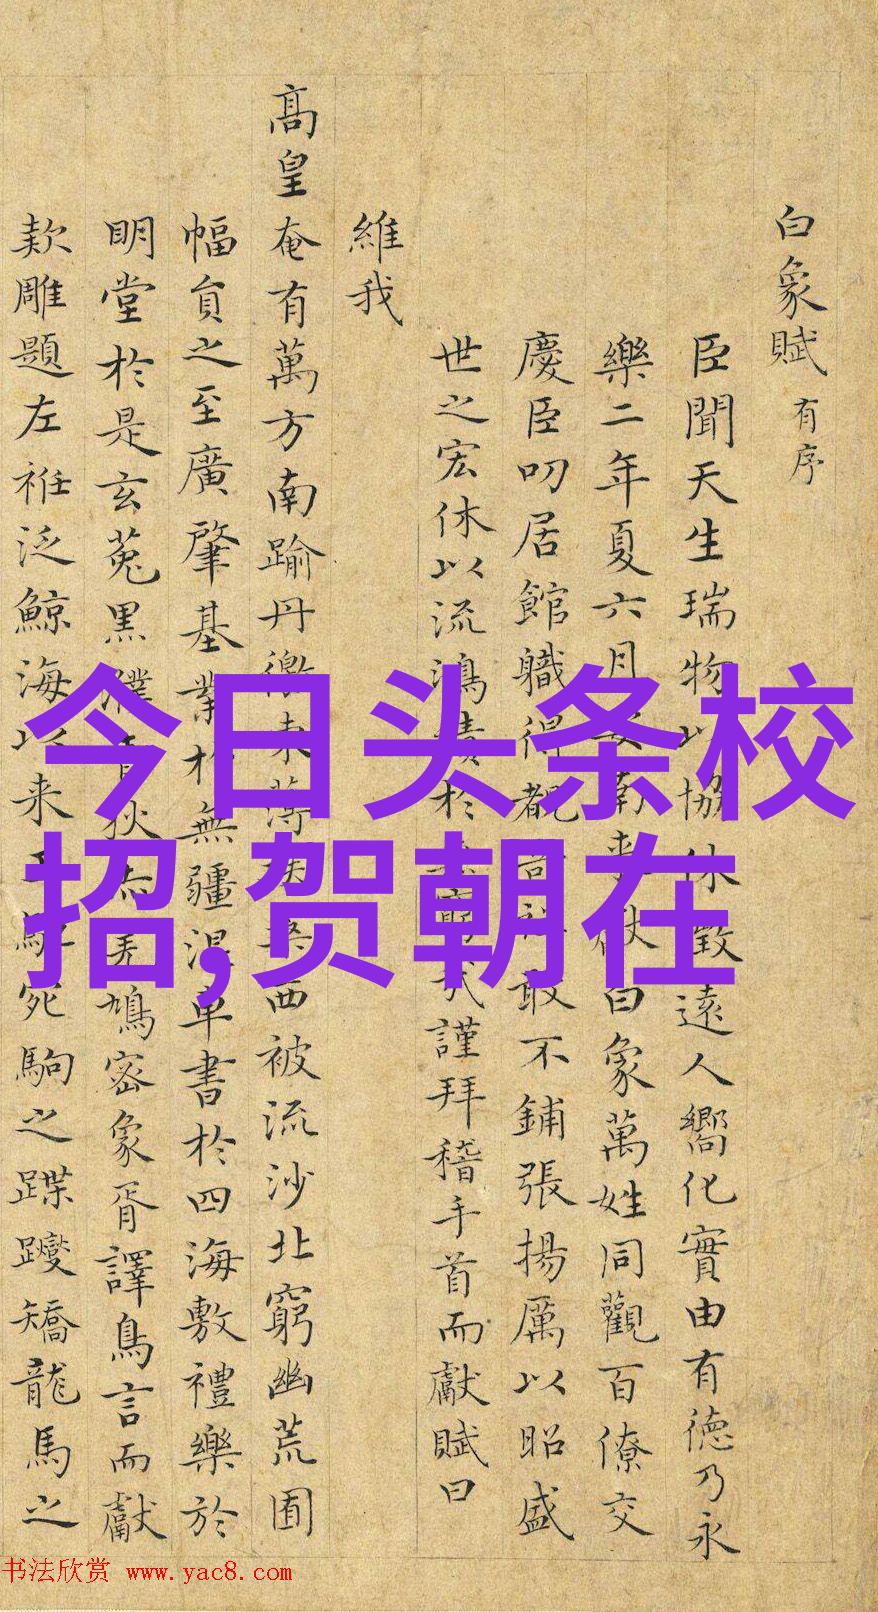 白象賦 有序
臣聞天生瑞物以協休徵遠人嚮化實由有德乃永
樂二年夏六月白象萬姓同觀百僚交
慶臣叨居館職得覩敢不鋪張揚厲以昭盛
世之宏休以流鴻績於謹拜稽手首而獻賦曰
維我
髙皇奄有萬方南踰丹徼東薄西被流沙北窮幽荒囿
幅員之至廣肇基業於無疆混車書於四海敷禮樂於
明堂於是玄菟黑濮鳩密象胥譯鳥言而獻
欵雕題左衽泛鯨海以来駒之蹀躞矯龍馬之
今日头条校
招,贺朝在
书法欣赏 www.yac8.com